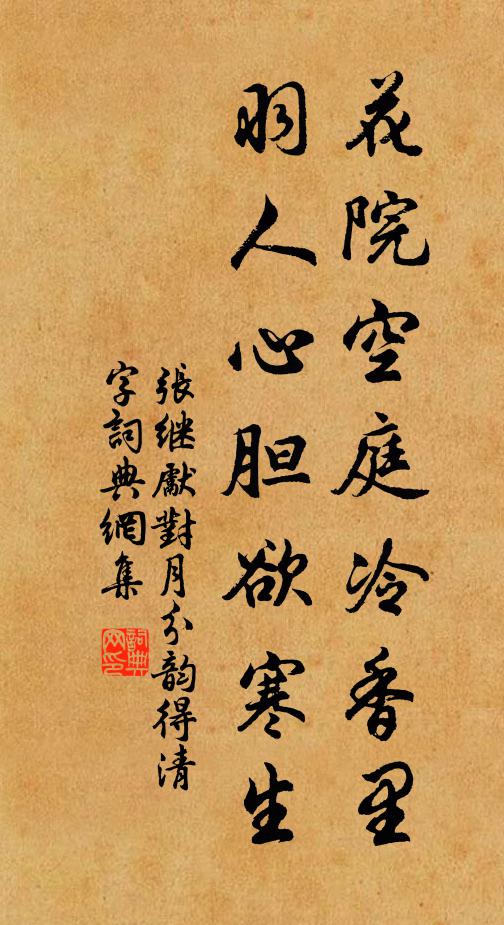 花院空庭冷香里
羽人心胆欲寒生
張继獻對月分韵得清
字詞典網集
詞典网印